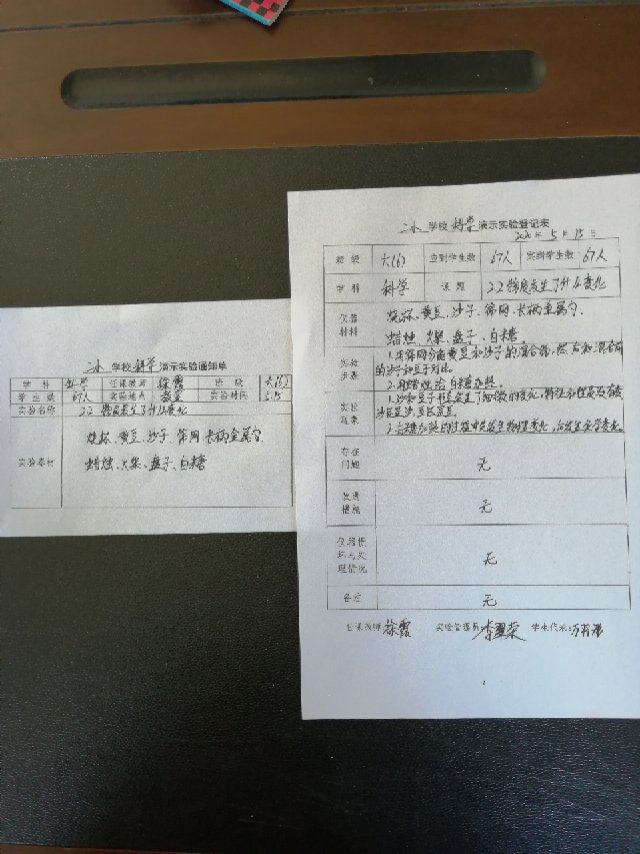 二小 学校 科学 演示实验通知单
学科 科学 任课教师 徐霞 班级 六(6)
学生数 67人 实验地点 教室 实验时间 5.15
实验名称 2.2 物质发生了什么变化
实验器材
烧杯、黄豆、沙子、筛网、长柄金属勺
蜡烛、火柴、盘子、白糖
学校 科学 演示实验登记表
2020年5月15日
班级 六(6) 应到学生数 67人 实到学生数 67人
学科 科学 课题 2.2 物质发生了什么变化
仪器材料
烧杯、黄豆、沙子、筛网、长柄金属勺、
蜡烛、火柴、盘子、白糖
实验步骤
1.用筛网分离黄豆和沙子的混合物,然后和混合前
的沙子和豆子对比。
2.用蜡烛给白糖加热
实验现象
1.沙和豆子
存在问题 无
改进措施 无
仪器损坏与处理情况 无
备注 无
任课教师 徐霞 实验管理员 学生代表: